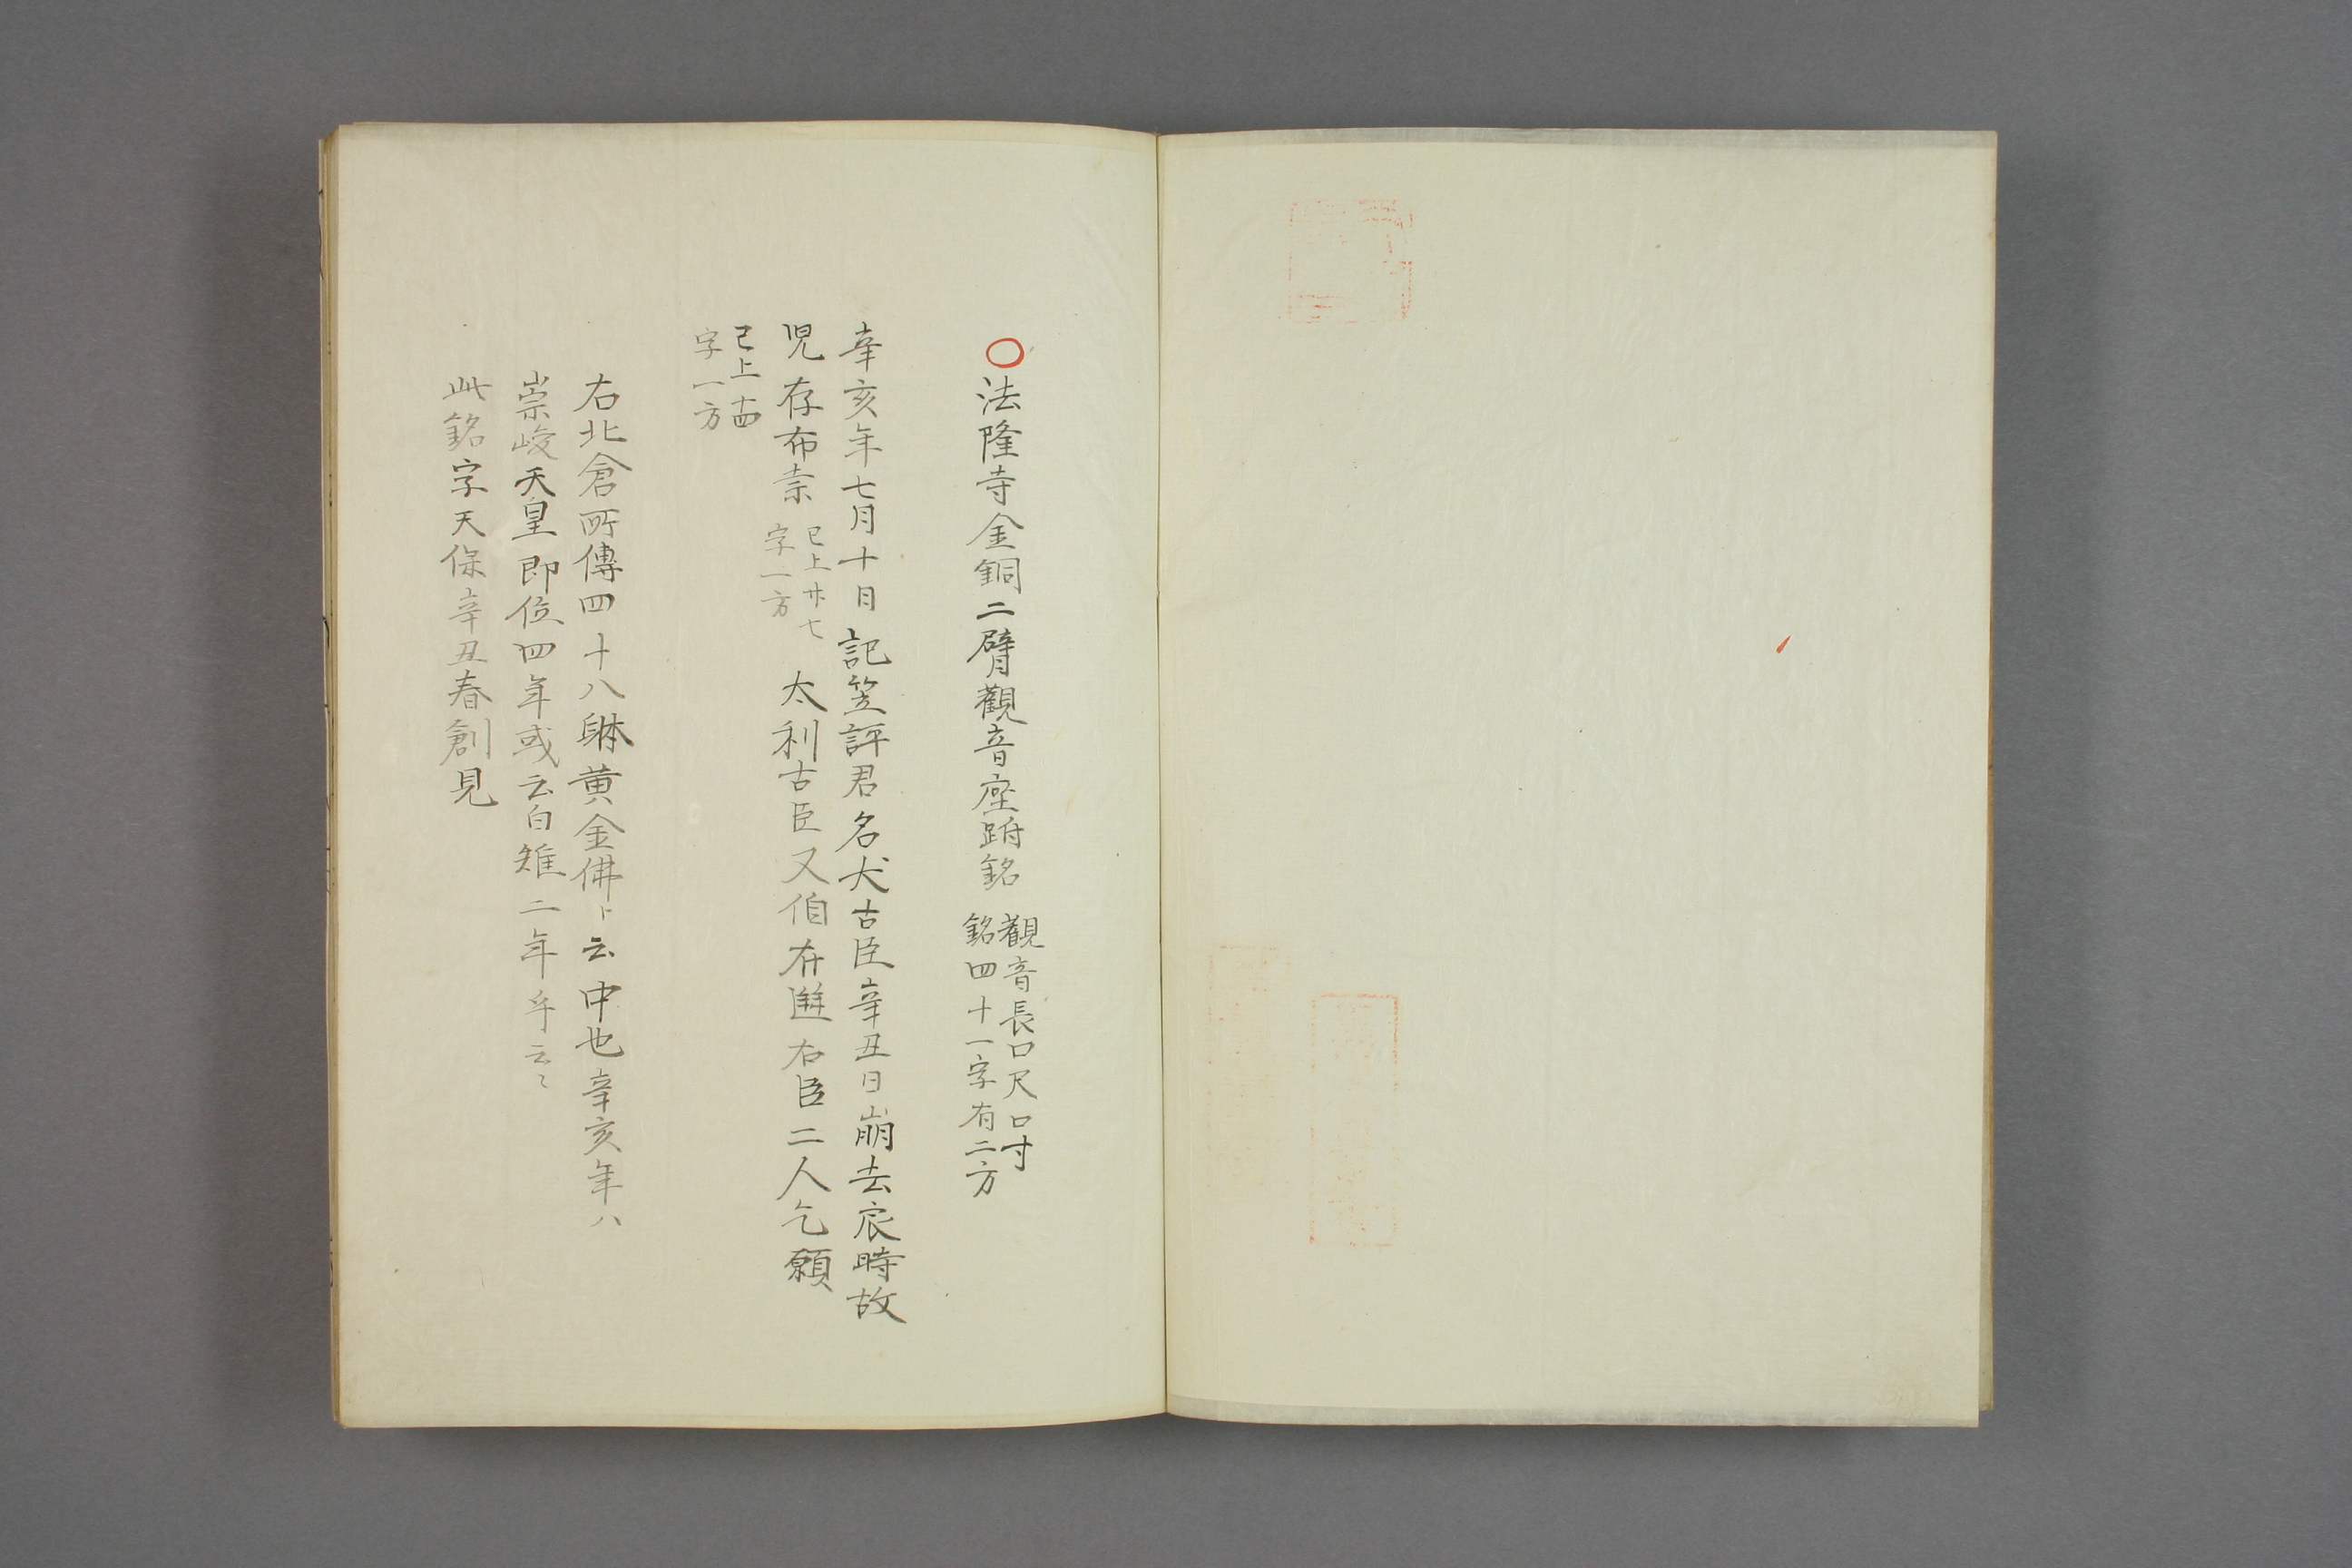 ○法隆寺金銅二臂觀音座跗銘
觀音長口尺口寸
銘四十一字有二方
辛亥年七月十日記笠評君名大古臣辛丑日崩去宸時故
児在布奈
已上廿七
字一方
太利古臣又伯在建古臣二人乞願
已上十四
字一方
右北倉所傳四十八躰黄金佛ト云中也辛亥年ハ
崇峻天皇即位四年或云白雉二年乎云〻
此銘字天保辛丑春創見